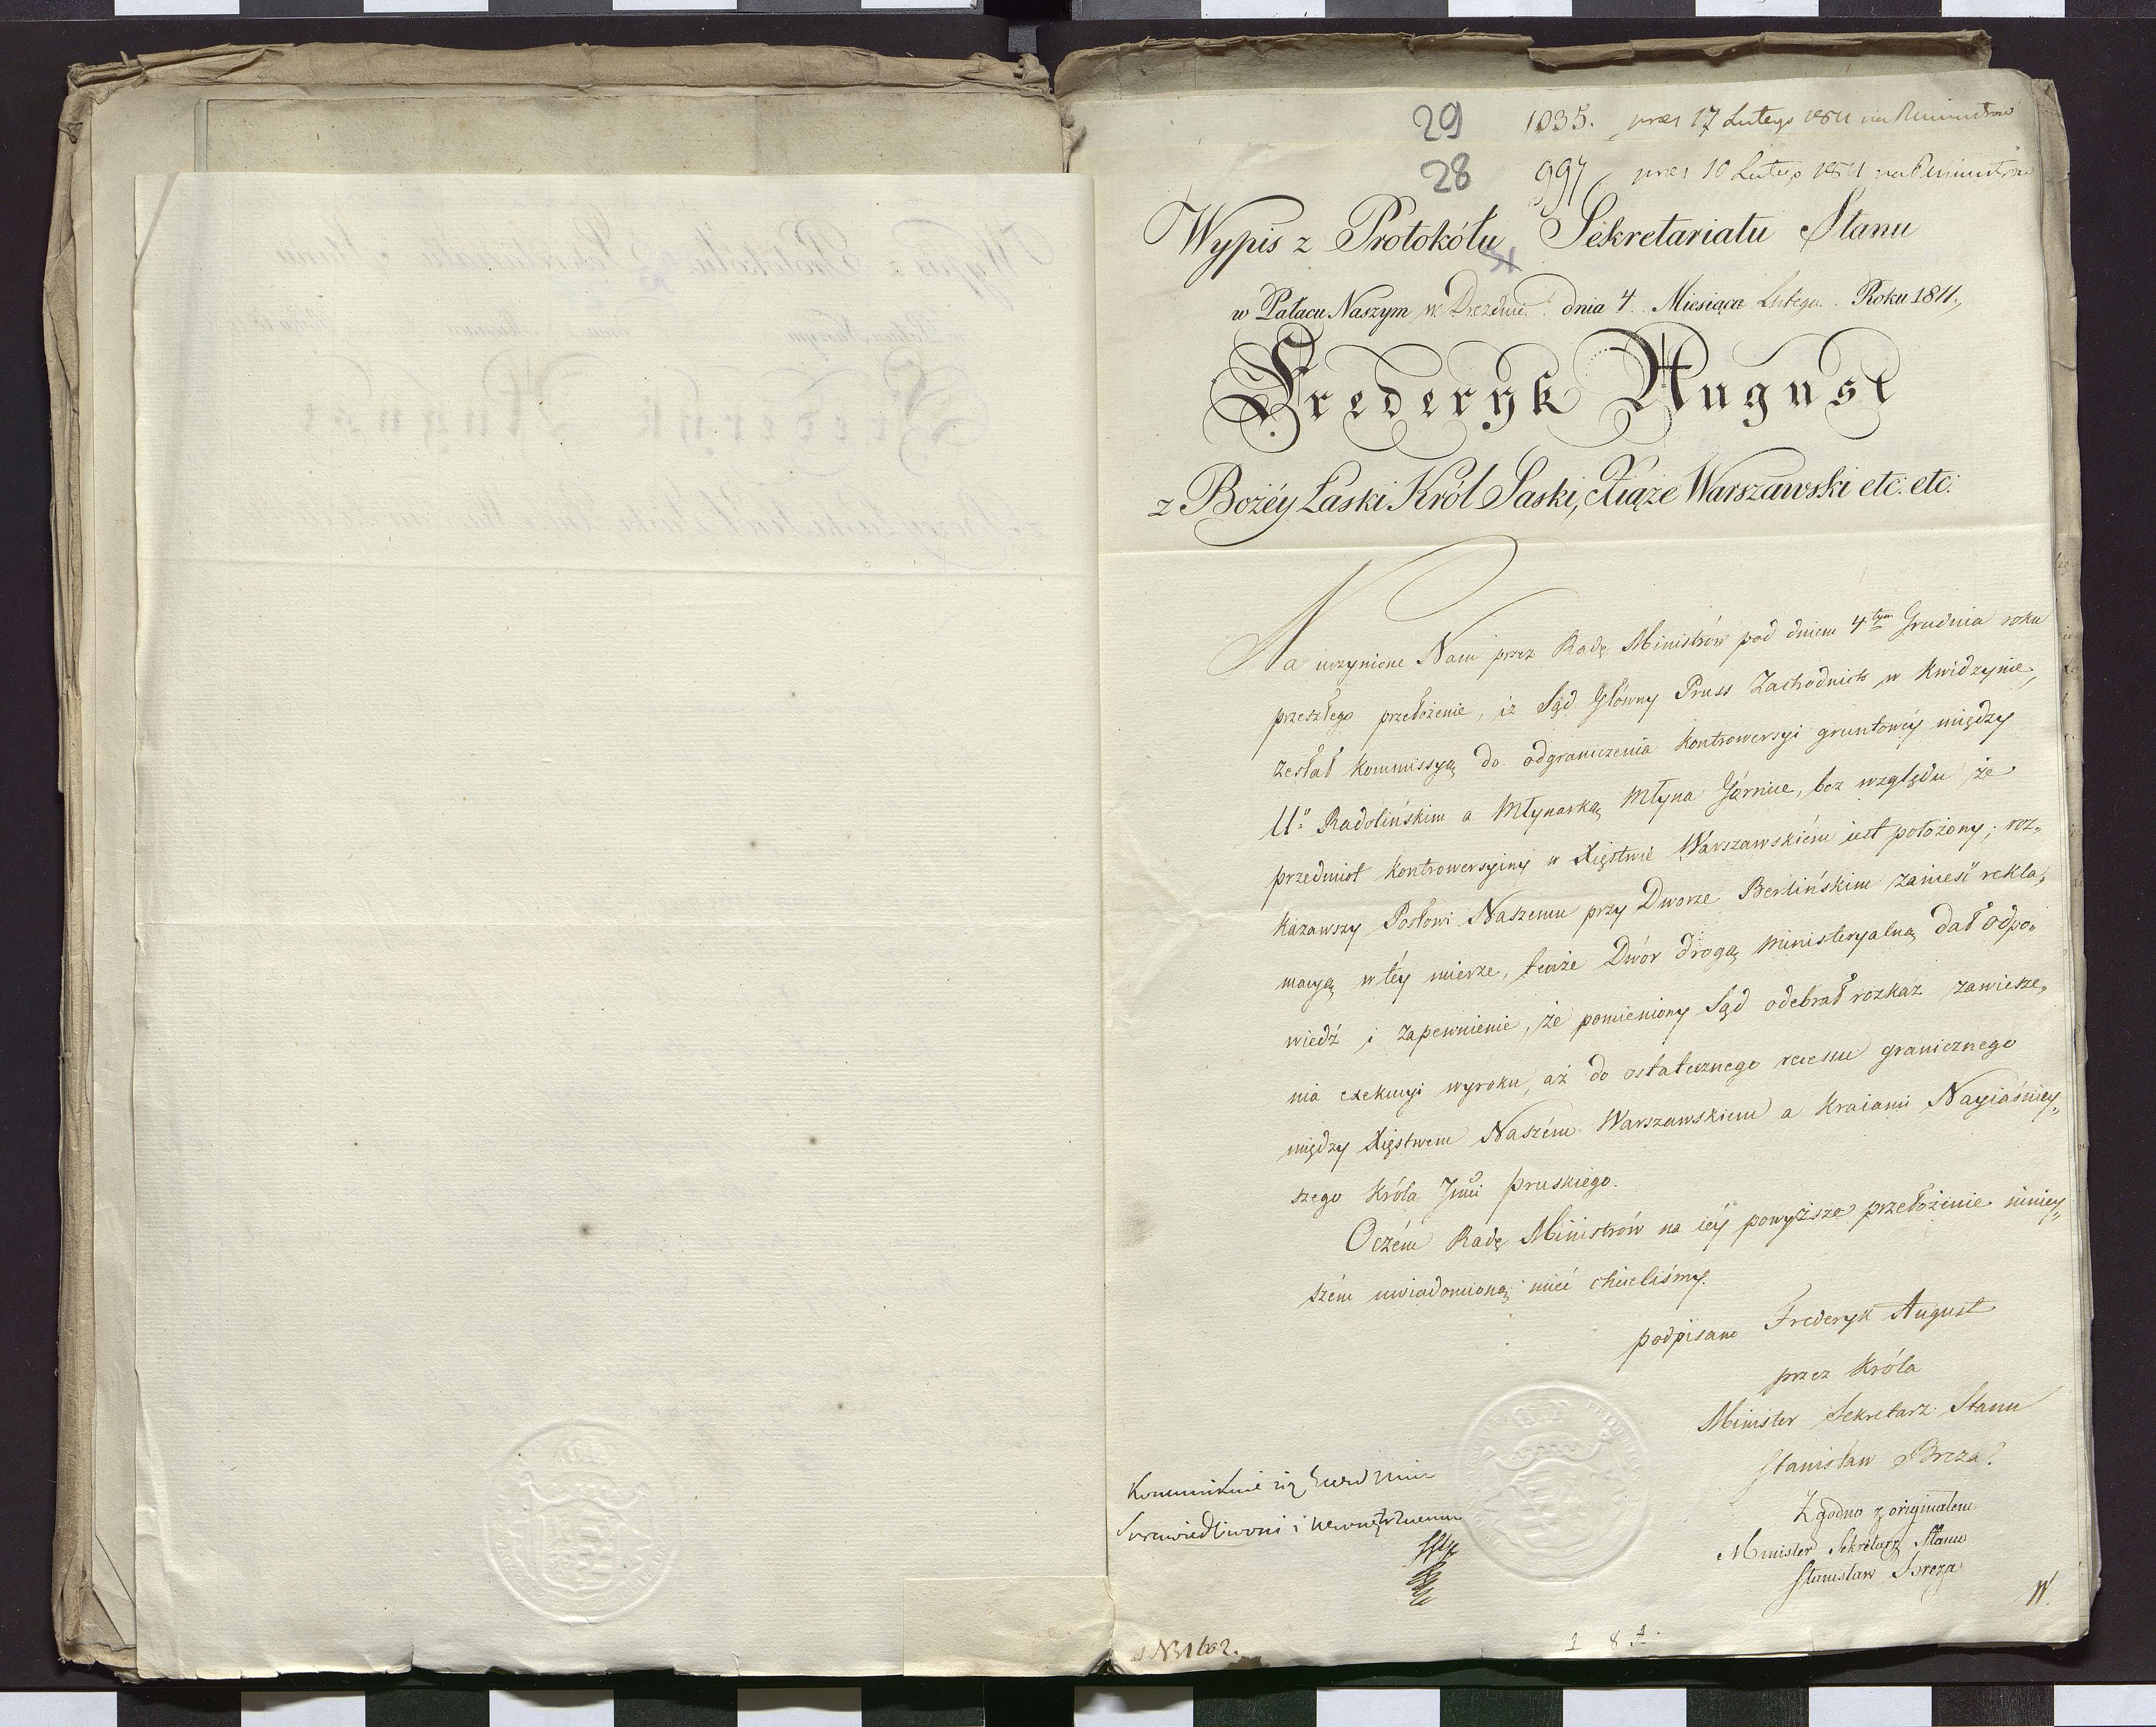 29 1035. prez 17 Lutego 1811 na R Ministrów
28 997 prez 10 Lutego 1811 na R Ministrów
Wypis z Protokółu Sekretariatu Stanu
w Pałacu Naszym w Dreznie dnia 4 Miesiąca Lutego Roku 1811.
Frederyk August
z Bożéy Łaski Król Saski, Xiąże Warszawski etc. etc.
Na uczynione Nam przez Radę Ministrów pod dniem 4tym Grudnia roku
przeszłego przełożenie, iż Sąd Główny Pruss Zachodnich w Kwidzynie,
zesłał Kommissyą do odgraniczenia kontrowersyi gruntowéy między
Uo Radolińskim a Młynarką Młyna Górnice, bez względu że
przedmiot kontrowersyiny w Xięstwie Warszawskiém iest położony; roz„
kazawszy Posłowi Naszemu przy Dworze Berlińskim zanieść rekla„
macyą w téy mierze, tenże Dwór drogą ministeryalną dał odpo„
wiedź i zapewnienie, że pomieniony Sąd odebrał rozkaz zawiesze„
nia exekucyi wyroku, aż do ostatecznego recessu granicznego
między Xięstwem Naszém Warszawskiem a kraiami Nayiaśniey„
szego Króla Jmci pruskiego.
Oczém Radę Ministrów na iéy powyższe przełożenie niniey„
szém uwiadomioną mieć chcieliśmy.
podpisano Frederyk August
przez Króla
Minister Sekretarz Stanu
Stanisław Breza.
Zgodno z originałem
Minister Sekretarz Stanu
Stanisław Breza
Kommunikuie się
Sprawiedliwości i Wewnętrznemu
N 1602.